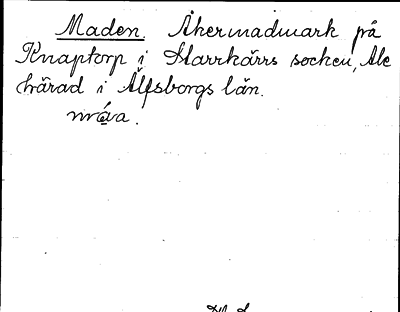 Maden. Åkermadmark på
Knaptorp i Starrkärrs socken, Ale
härad i Älfsborgs län.